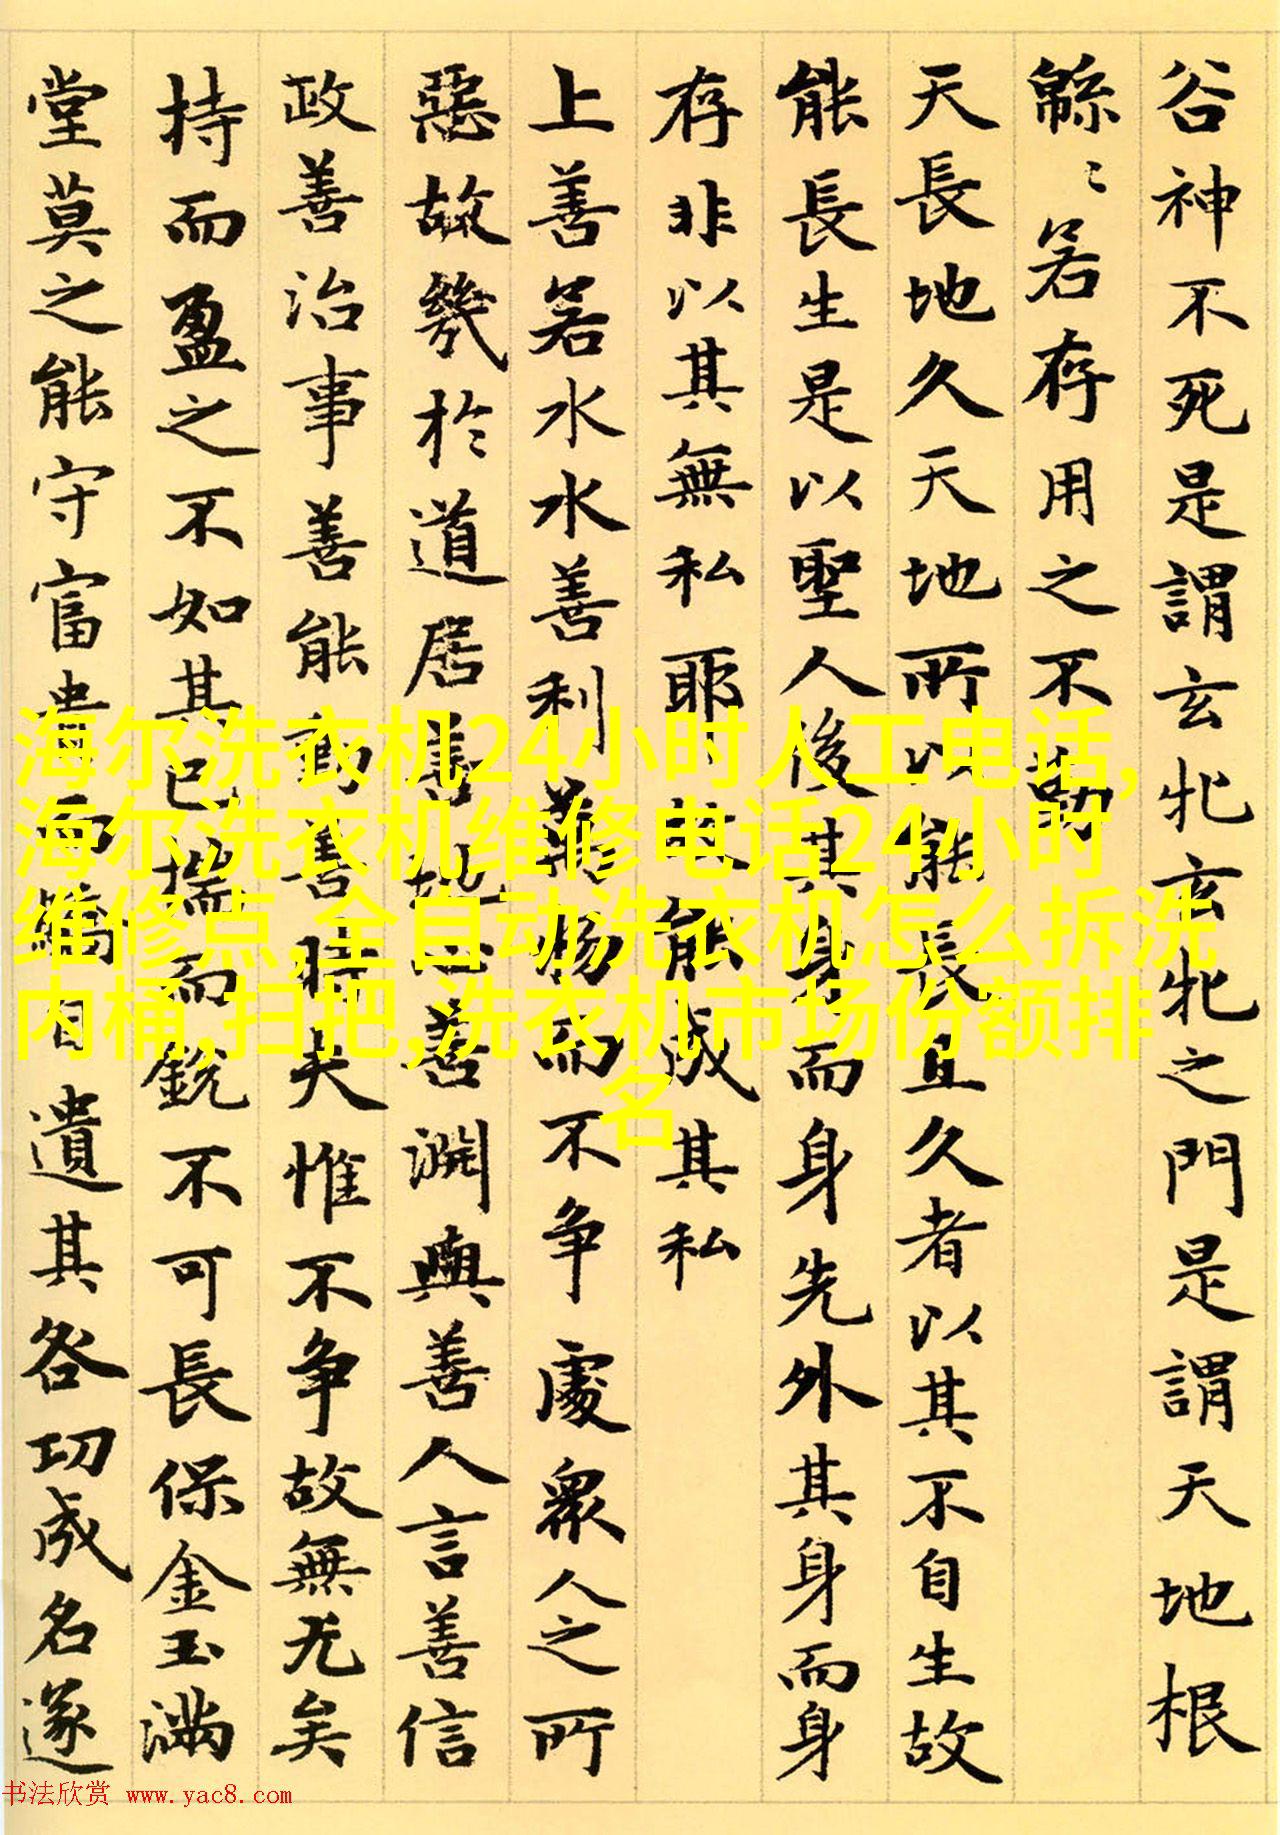 谷神不死是謂玄牝玄牝之門是謂天地根
緜〻若存用之不勤
天長地久天地所以能長且久者以其不自生故
能長生是以聖人後其身而身先外其身而身
存非以其無私耶故能成其私
上善若水水善利萬物而不争處衆人之所
惡故幾於道居善地心善淵與善人言善信
政善治事善能動善時夫惟不争故無尤矣
持而盈之不如其已揣而銳不可長保金玉滿
堂莫之能守富貴而驕自遺其咎功成名遂
海尔洗衣机24小时人工电话,
海尔洗衣机维修电话24小时
维修点,全自动洗衣机怎么拆洗
内桶,扫把,洗衣机市场份额排
名
书法欣赏 www.yac8.com